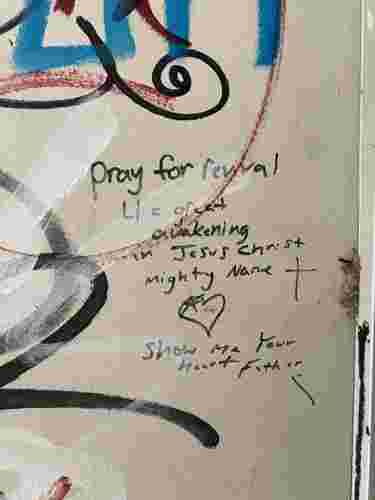 pray for revival
great
awakening
in Jesus Christ
mighty Name
Show Me Your
Heart Father